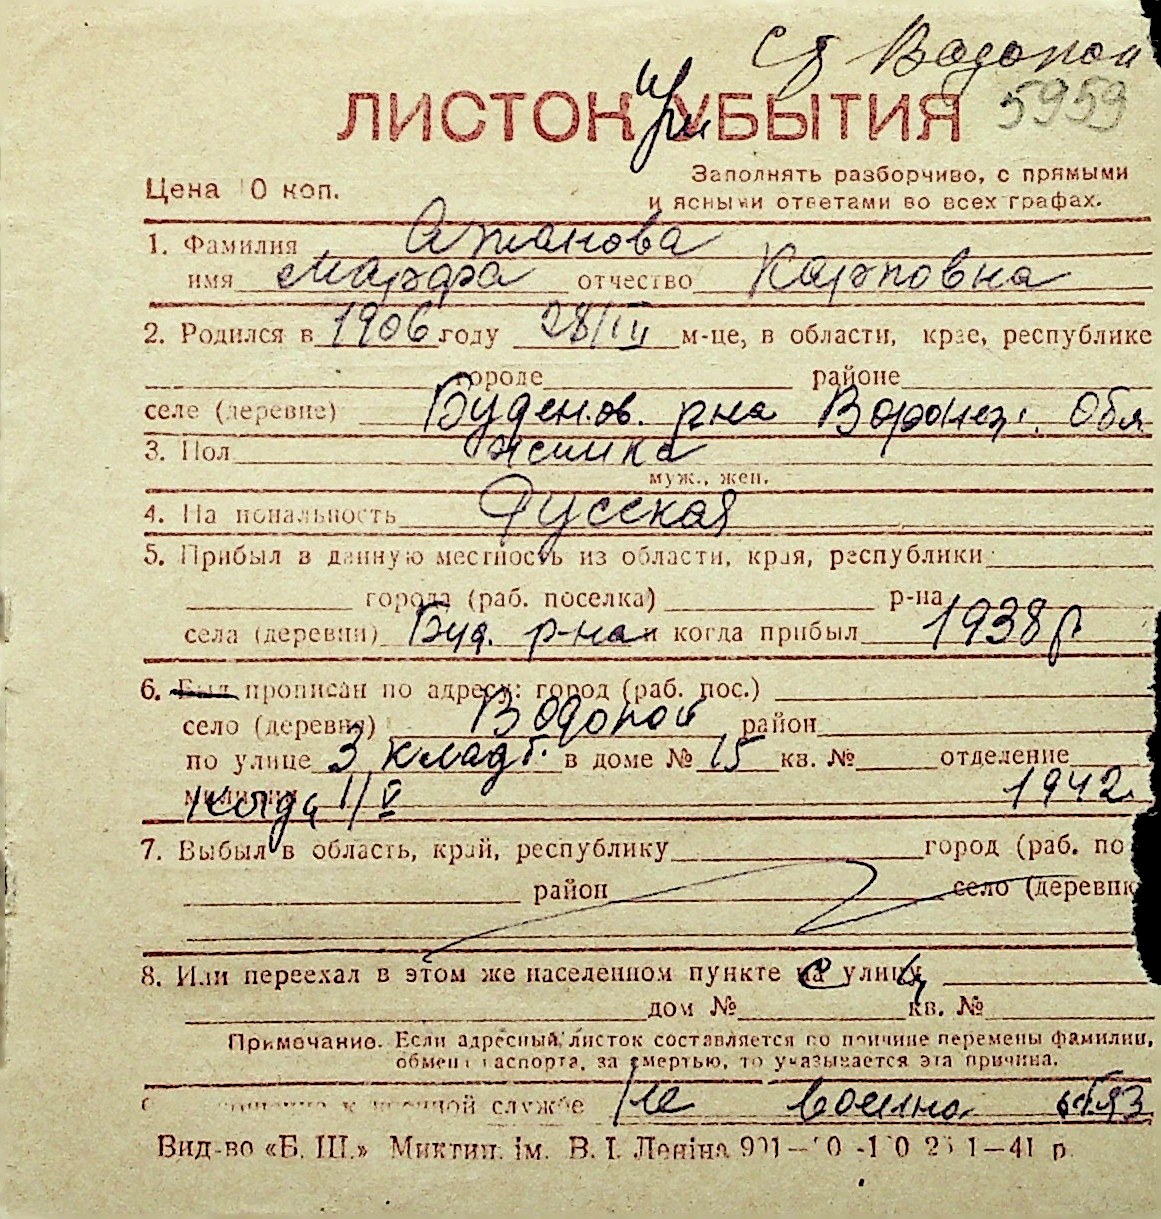 Водопой
5959
ЛИСТОК УБЫТИЯ
при
Цена 10 коп.
Заполнять разборчиво, с прямыми
и ясными ответами во всех графах.
1. Фамилия Атанова
имя Марфа отчество Карповна
2. Родился в 1906 году 28/III м-це, в области, крае, республике
городе районе
селе (деревне) Буденов. р-на Воронеж. Обл
3. Пол женска
муж., жен.
4. Национальность Русская
5. Прибыл в данную местность из области, края, республики
города (раб. поселка) р-на
села (деревни) Буд. р-на и когда прибыл 1938 г
6. Был прописан по адресу: город (раб. пос.)
село (деревня) Водопой район
по улице 3 кладб. в доме № 15 кв. № отделение
милиции Когда 1/V 1942.
7. Выбыл в область, край, республику город (раб. по
район село (деревня
8. Или переехал в этом же населенном пункте на улицу
с ы
дом № кв. №
Примечание. Если адресный листок составляется по причине перемены фамилии,
обмена паспорта, за смертью, то указывается эта причина.
военной службе Не военнообяз
Вид-во «Б. Ш.» Миктип. ім. В. І. Леніна 1—41 р.